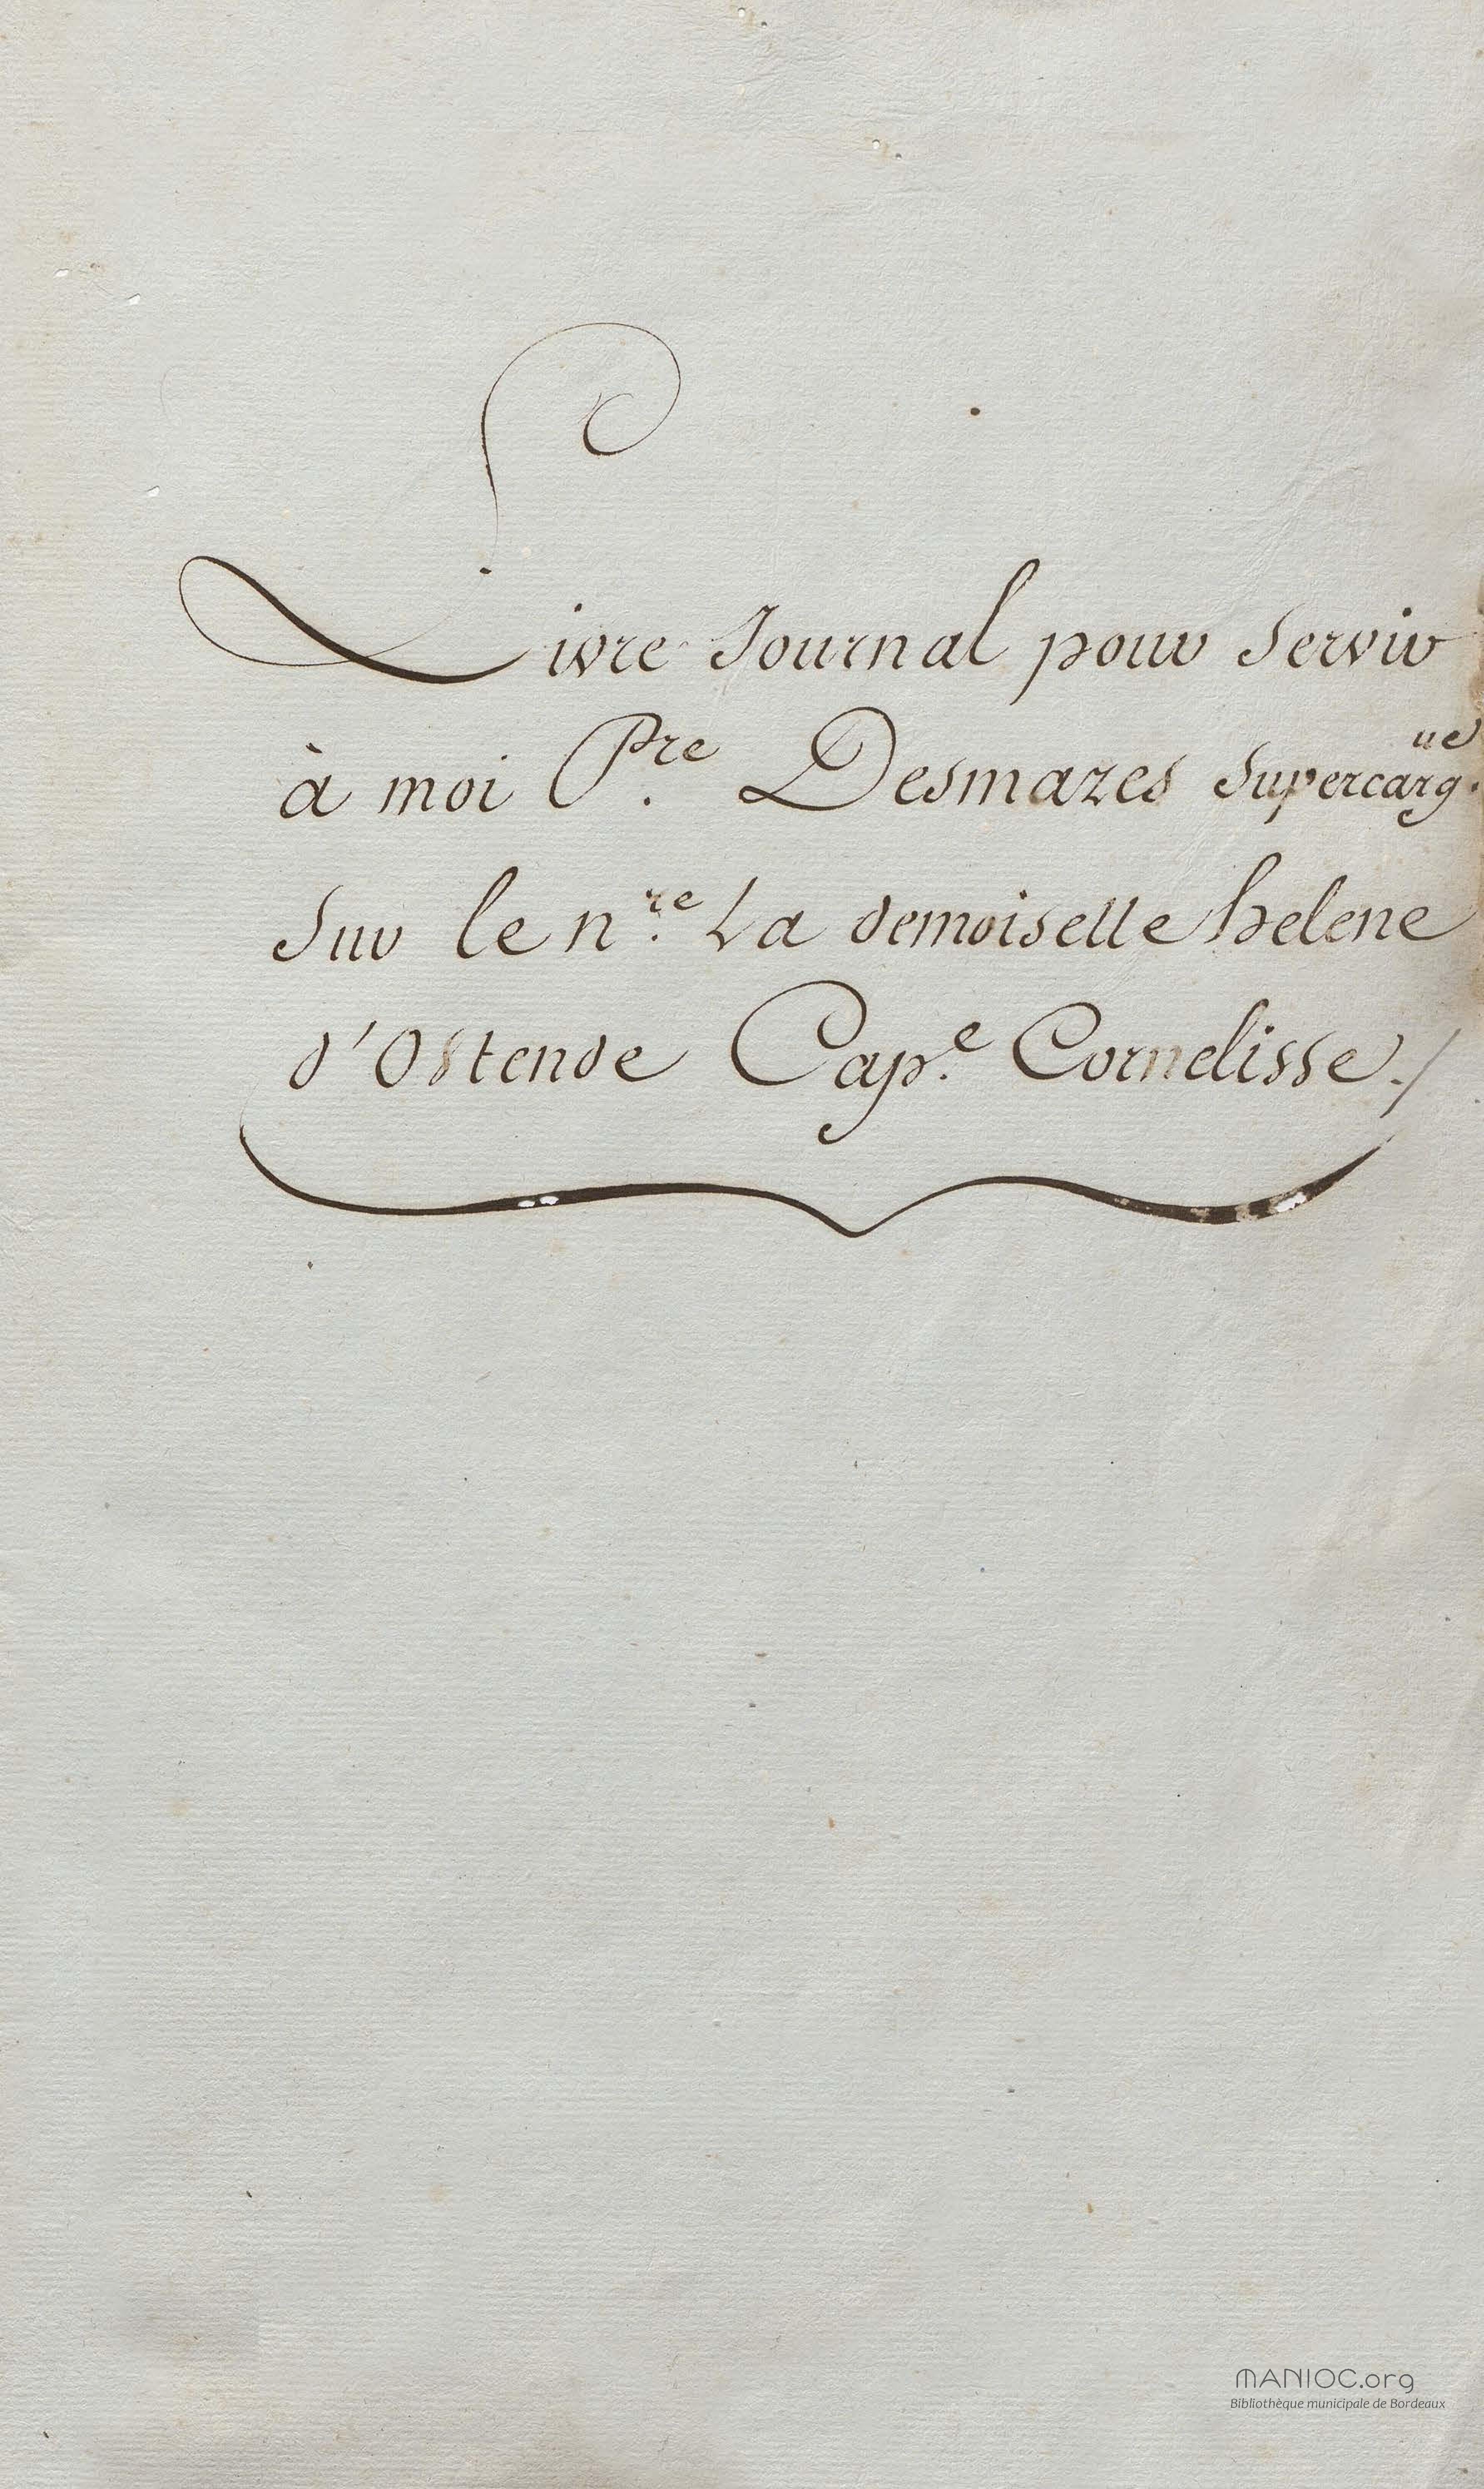 Livre Journal pour Servir
à moi P.re Desmazes Supercarg.ue
Sur le n.re La demoiselle helene
d'Ostende Cap.e Cornelisse ./
MANIOC.org
Bibliothèque municipale de Bordeaux